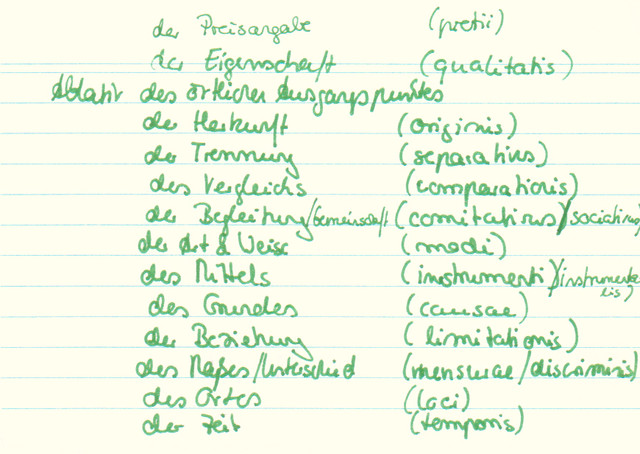 der Preisangabe (pretii)
der Eigenschaft (qualitatis)
Ablativ des örtlichen Ausgangspunktes
der Herkunft (originis)
der Trennung (separativus)
des Vergleichs (comparationis)
der Begleitung/Gemeinschaft (comitativus)/sociativus)
der Art & Weise (modi)
des Mittels (instrumenti)/instrumentalis)
des Grundes (causae)
der Beziehung (limitationis)
des Maßes/Unterschied (mensurae/discriminis)
des Ortes (loci)
der Zeit (temporis)